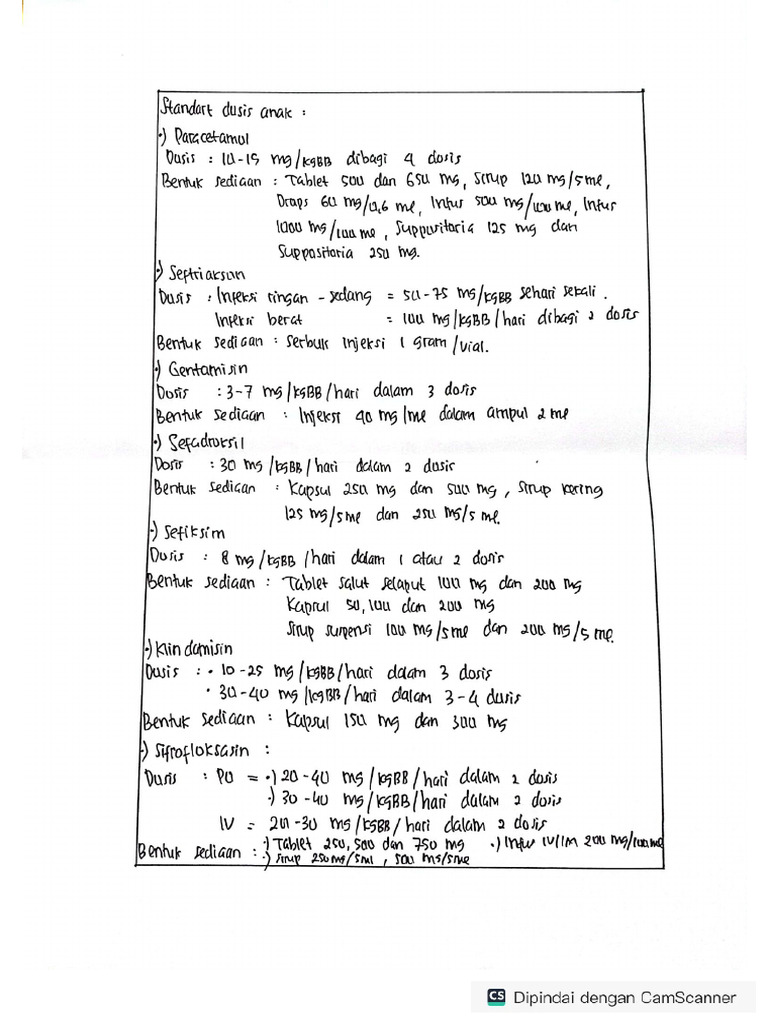 Standart dosis anak :
·) Paracetamol
Dosis : 10-15 mg/kgBB dibagi 4 dosis
Bentuk sediaan : Tablet 500 dan 650 mg, Sirup 120 mg/5 ml,
Drops 60 mg/0,6 ml, Infus 500 mg/100 ml, Infus
1000 mg/100 ml, Suppositoria 125 mg dan
Suppositoria 250 mg.
·) Seftriakson
Dosis : Infeksi ringan - sedang = 50-75 mg/kgBB sehari sekali.
Infeksi berat = 100 mg/kgBB/hari dibagi 2 dosis
Bentuk sediaan : Serbuk injeksi 1 gram/vial.
·) Gentamisin
Dosis : 3-7 mg/kgBB/hari dalam 3 dosis
Bentuk sediaan : Injeksi 40 mg/ml dalam ampul 2 ml
·) Sefadroksil
Dosis : 30 mg/kgBB/hari dalam 2 dosis
Bentuk sediaan : Kapsul 250 mg dan 500 mg, sirup kering
125 mg/5 ml dan 250 mg/5 ml.
·) Sefiksim
Dosis : 8 mg/kgBB/hari dalam 1 atau 2 dosis
Bentuk sediaan : Tablet salut selaput 100 mg dan 200 mg
Kapsul 50, 100 dan 200 mg
Sirup suspensi 100 mg/5 ml dan 200 mg/5 ml.
·) Klindamisin
Dosis : • 10-25 mg/kgBB/hari dalam 3 dosis
• 30-40 mg/kgBB/hari dalam 3-4 dosis
Bentuk sediaan : Kapsul 150 mg dan 300 mg
·) Sifrofloksasin :
Dosis : PO = ·) 20-40 mg/kgBB/hari dalam 2 dosis
·) 30-40 mg/kgBB/hari dalam 2 dosis
IV = 20-30 mg/kgBB/hari dalam 2 dosis
Bentuk sediaan : ·) Tablet 250, 500 dan 750 mg ·) Infus IV/IM 200 mg/100 ml
·) Sirup 250 mg/5ml, 500 mg/5ml
CS Dipindai dengan CamScanner